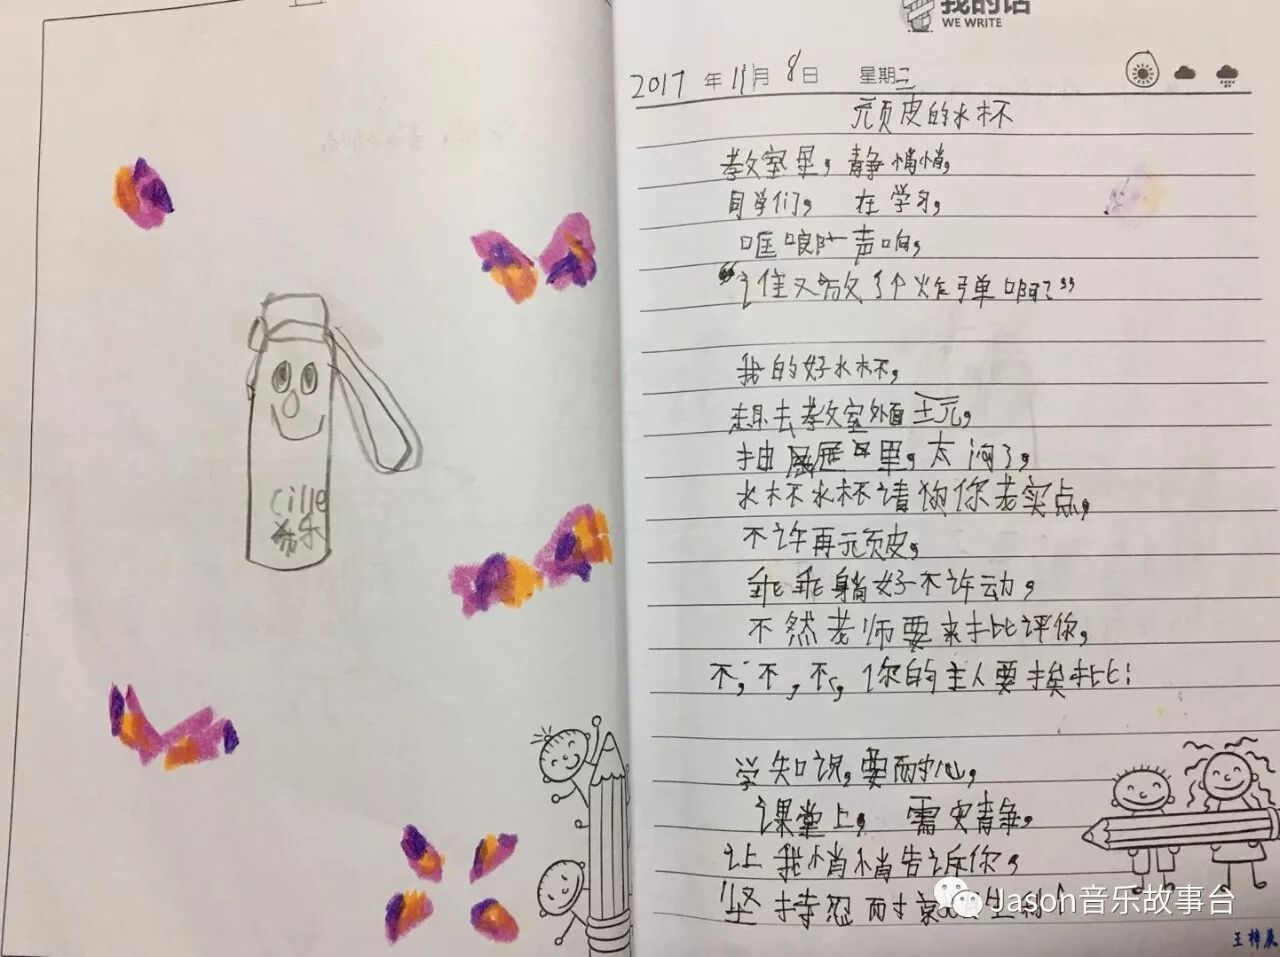 我的话
WE WRITE
2017 年 11月 8日 星期三
顽皮的水杯
教室里，静悄悄，
同学们，在学习，
哐啷一声响，
“谁又放了个炸弹啊？”
我的好水杯，
想去教室外面玩，
抽屉里，太闷了，
水杯水杯请你老实点，
不许再顽皮，
乖乖躺好不许动，
不然老师要来批评你，
不，不，不，你的主人要挨批！
学知识，要耐心，
课堂上，需安静，
让我悄悄告诉你，
坚持忍耐
cille
希乐
Jason音乐故事台
王梓晨